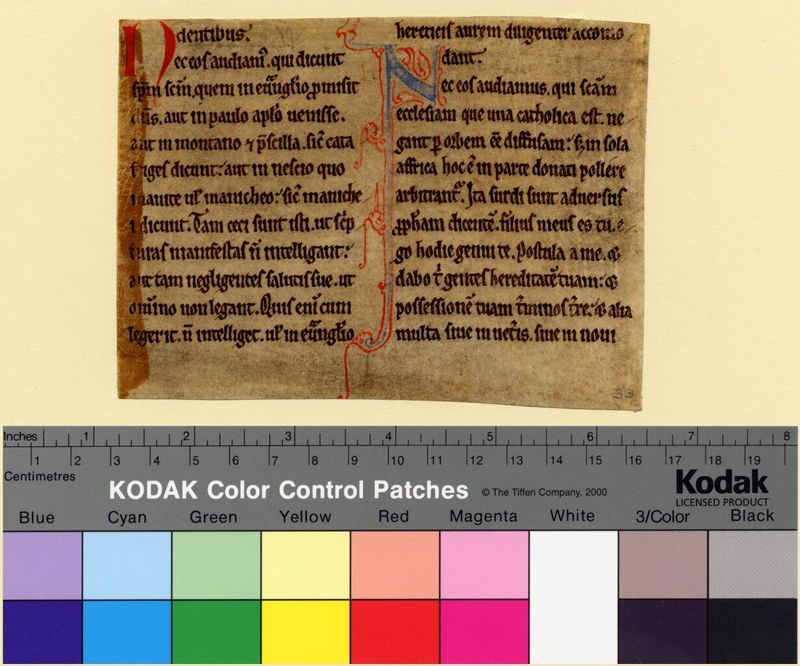 dentibus.
Nec eos audiam'. qui dicunt
sp̄m sc̄m, quem in eu̅ãglio p̱misit
dn̄s, aut in paulo apl̄o uenisse.
aut in montano ⁊ p̄scilla. sic̄ cata
friges dicunt: aut in nescio quo
manite ul̛ manicheo: sic̄ maniche
i dicunt. Tam ceci sunt isti. ut sc̄p
turas manifestas n̄ intelligant:
aut tam negligentes salutis sue. ut
om̄ino non legant. Quis eni̅ cum
legerit. n̄ intelliget. ul̛ in eu̅ãglio
hereticis aurem diligenter accomo
dant.
Nec eos audiamus. qui sc̄am
ecclesiam que una catholica est. ne
gant ꝑ orbem ēē diffusam: sꝫ in sola
affrica hoc ē in parte donati pollere
arbitrant᷑. Ita surdi sunt aduersus
ꝓph̄am dicentē. filius meus es tu. e
go hodie genui te. Postula a me. ⁊
dabo t̄ gentes hereditatē tuam: ⁊
possessionē tuam t̄minos t̄re. ⁊ alia
multa siue in uet̄is. siue in noui
33
Inches 1 2 3 4 5 6 7 8
Centimetres 1 2 3 4 5 6 7 8 9 10 11 12 13 14 15 16 17 18 19
KODAK Color Control Patches © The Tiffen Company, 2000 Kodak
LICENSED PRODUCT
Blue Cyan Green Yellow Red Magenta White 3/Color Black